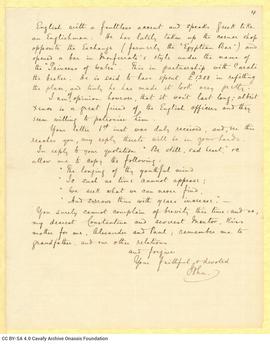 4
English with a faultless accent and speaks Greek like
an Englishman. He has lately taken up the corner shop
opposite the Exchange (formerly the "Egyptian Bar") and
opened a bar in Monferrato's style under the name of
the "Princess of Wales". His in partnership with Caralli
the broker. He is said to have spent £1200 in refitting
the place, and truly he has made it look very pretty.
I am of opinion however, that it won't last long; albeit
Xenos is a great friend of the English officers and they
seem willing to patronise him.
Your letter 1st inst was duly received, and, ere this
reaches you, my reply thereto will be in your hands.
In reply to your quotation "Be still, sad heart" &c
allow me to copy the following.
"The longing of thy youthful mind
Is such as time cannot appease;
We seek what we can never find,
And sorrows thou with years increase:—
You surely cannot complain of brevity this time; and so,
my dearest Constantine and severest Mentor, Kiss
mother for me, Alexander and Paul; remember me to
grandfather, and our other relations
and forgive
Your faithful & devoted
John
CC BY-SA 4.0 Cavafy Archive Onassis Foundation